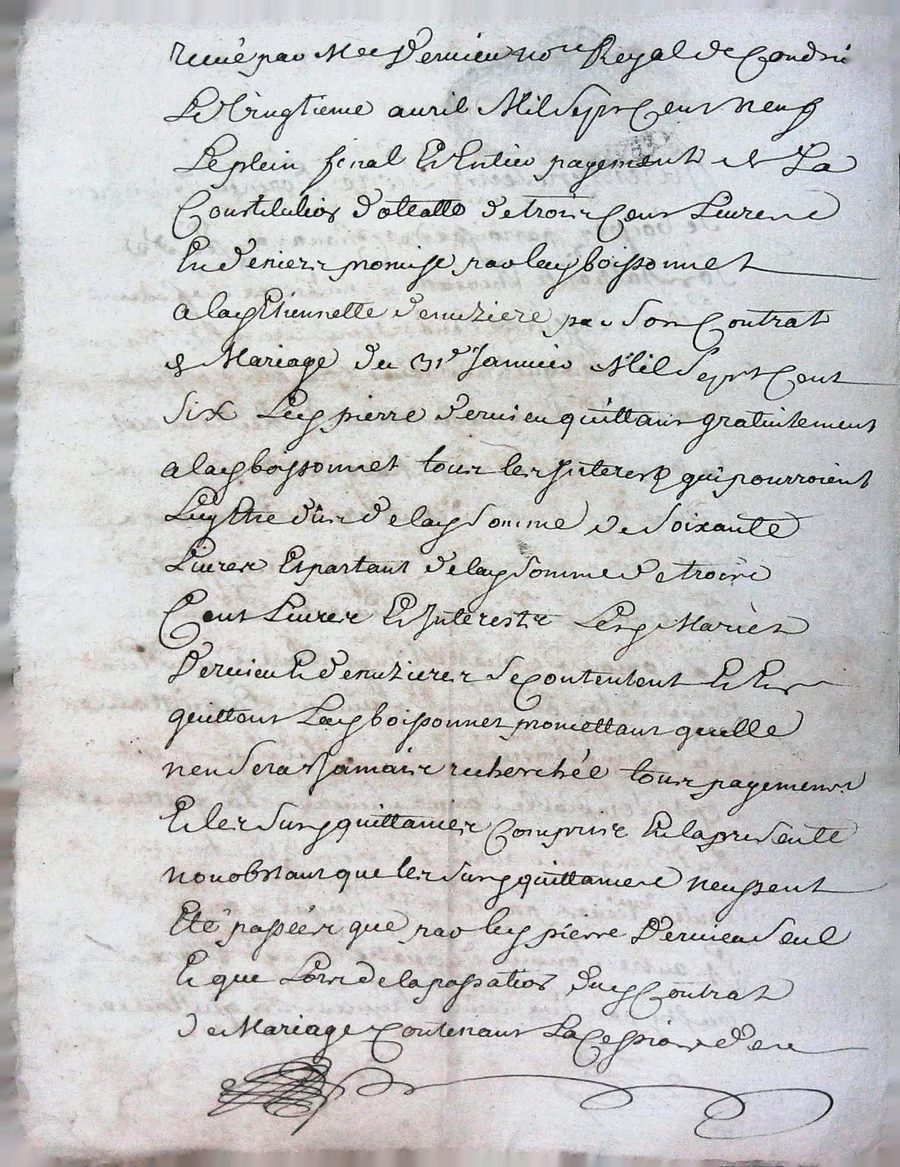 reçué par Mee Dervieu no.re Royal de Condrieu
Le Vingtieme auril Mil Sept Cent neuf
Le plein final Et Entier payement de La
Constitution dotalle de trois Cent Livres
En deniers promise par lad boissonnet
a lad Etiennette demzieres par son Contrat
de Mariage du 31e Janvier Mil Sept Cent
Six Led pierre dervieu quittant gratuitement
a lad boissonnet tous les Interest qui pourroient
Luy Etre dus de lad somme de soixante
Livres Et partant de lad somme de trois
Cent Livres Et Interests Lesd Mariés
Dervieu Et demzieres se Contentent Et En
quittent Lad boissonnet promettant quelle
nen sera Jamais recherchée tous payements
Et les susd quittances Compris En la presente
nonobstant que les susd quittances neussent
Eté passées que par led pierre Dervieu seul
Et que Lors de la passation dud Contrat
de Mariage Contenant La Cession